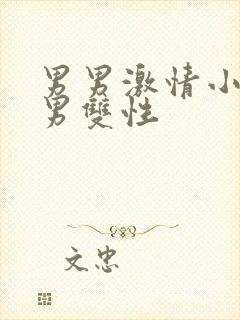 男男激情小
男雙性
文忠